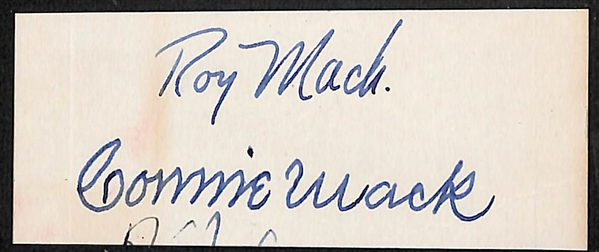 Roy Mack.
Connie Mack